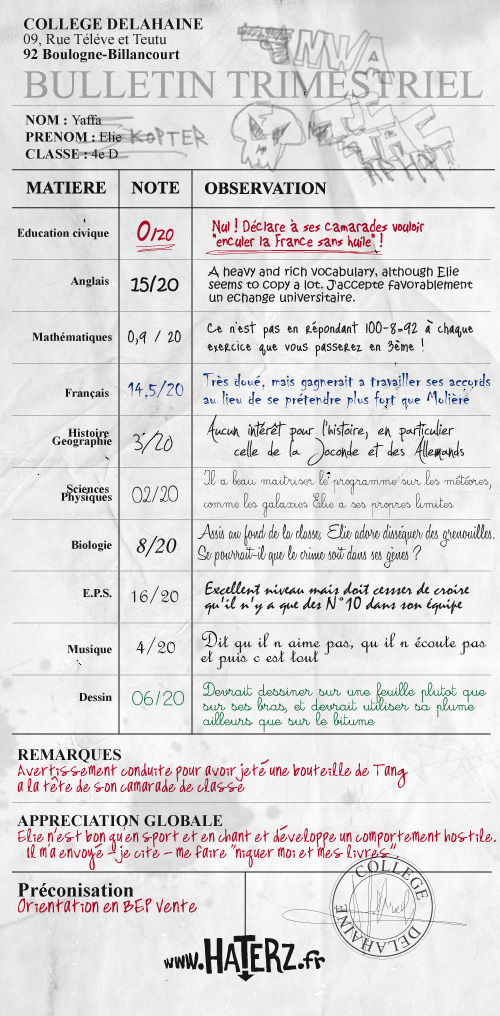 COLLEGE DELAHAINE
09, Rue Téléve et Teutu
92 Boulogne-Billancourt
BULLETIN TRIMESTRIEL
MWA
NOM : Yaffa
PRENOM : Elie KOPTER
CLASSE : 4e D
MATIERE NOTE OBSERVATION
Education civique 0/20 Nul ! Déclare à ses camarades vouloir
"enculer la France sans huile" !
Anglais 15/20 A heavy and rich vocabulary, although Elie
seems to copy a lot. J'accepte favorablement
un echange universitaire.
Mathématiques 0,9 / 20 Ce n'est pas en répondant 100-8=92 à chaque
exercice que vous passerez en 3ème !
Français 14,5/20 Très doué, mais gagnerait a travailler ses accords
au lieu de se prétendre plus fort que Molière
Histoire
Géographie 3/20 Aucun intérêt pour l'histoire, en particulier
celle de la Joconde et des Allemands
Sciences
Physiques 02/20 Il a beau maitriser le programme sur les météores,
comme les galaxies Elie a ses propres limites
Biologie 8/20 Assis au fond de la classe, Elie adore disséquer des grenouilles.
Se pourrait-il que le crime soit dans ses gènes ?
E.P.S. 16/20 Excellent niveau mais doit cessser de croire
qu'il n'y a que des N°10 dans son équipe
Musique 4/20 Dit qu il n aime pas, qu il n écoute pas
et puis c est tout
Dessin 06/20 Devrait dessiner sur une feuille plutot que
sur ses bras, et devrait utiliser sa plume
ailleurs que sur le bitume
REMARQUES
Avertissement conduite pour avoir jeté une bouteille de Tang
a la tête de son camarade de classe
APPRECIATION GLOBALE
Elie n'est bon qu'en sport et en chant et développe un comportement hostile.
Il m'a envoyé - je cite - me faire "niquer moi et mes livres".
Préconisation
Orientation en BEP Vente
COLLEGE
DELAHAINE
www.HATERZ.fr